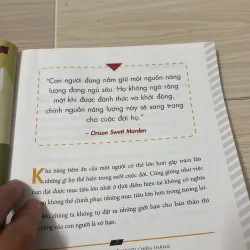 "Con người đang nắm giữ một nguồn năng
lượng đang ngủ sâu. Họ không ngờ rằng
một khi được đánh thức và khởi động,
chính nguồn năng lượng này sẽ sang trang
cho cuộc đời họ."
– Orison Swett Marden
Khả năng tiềm ẩn của một người có thể lớn hơn gấp trăm lần
những gì họ thể hiện trong suốt cuộc đời. Cũng giống như việc
bạn đạt được mục tiêu lớn nhất ở thời điểm hiện tại không có nghĩa
bạn không thể chinh phục những mục tiêu lớn hơn trong tương lai.
chúng ta không tự đặt ra những giới hạn cho bản thân thì
năng của con người là vô hạn.